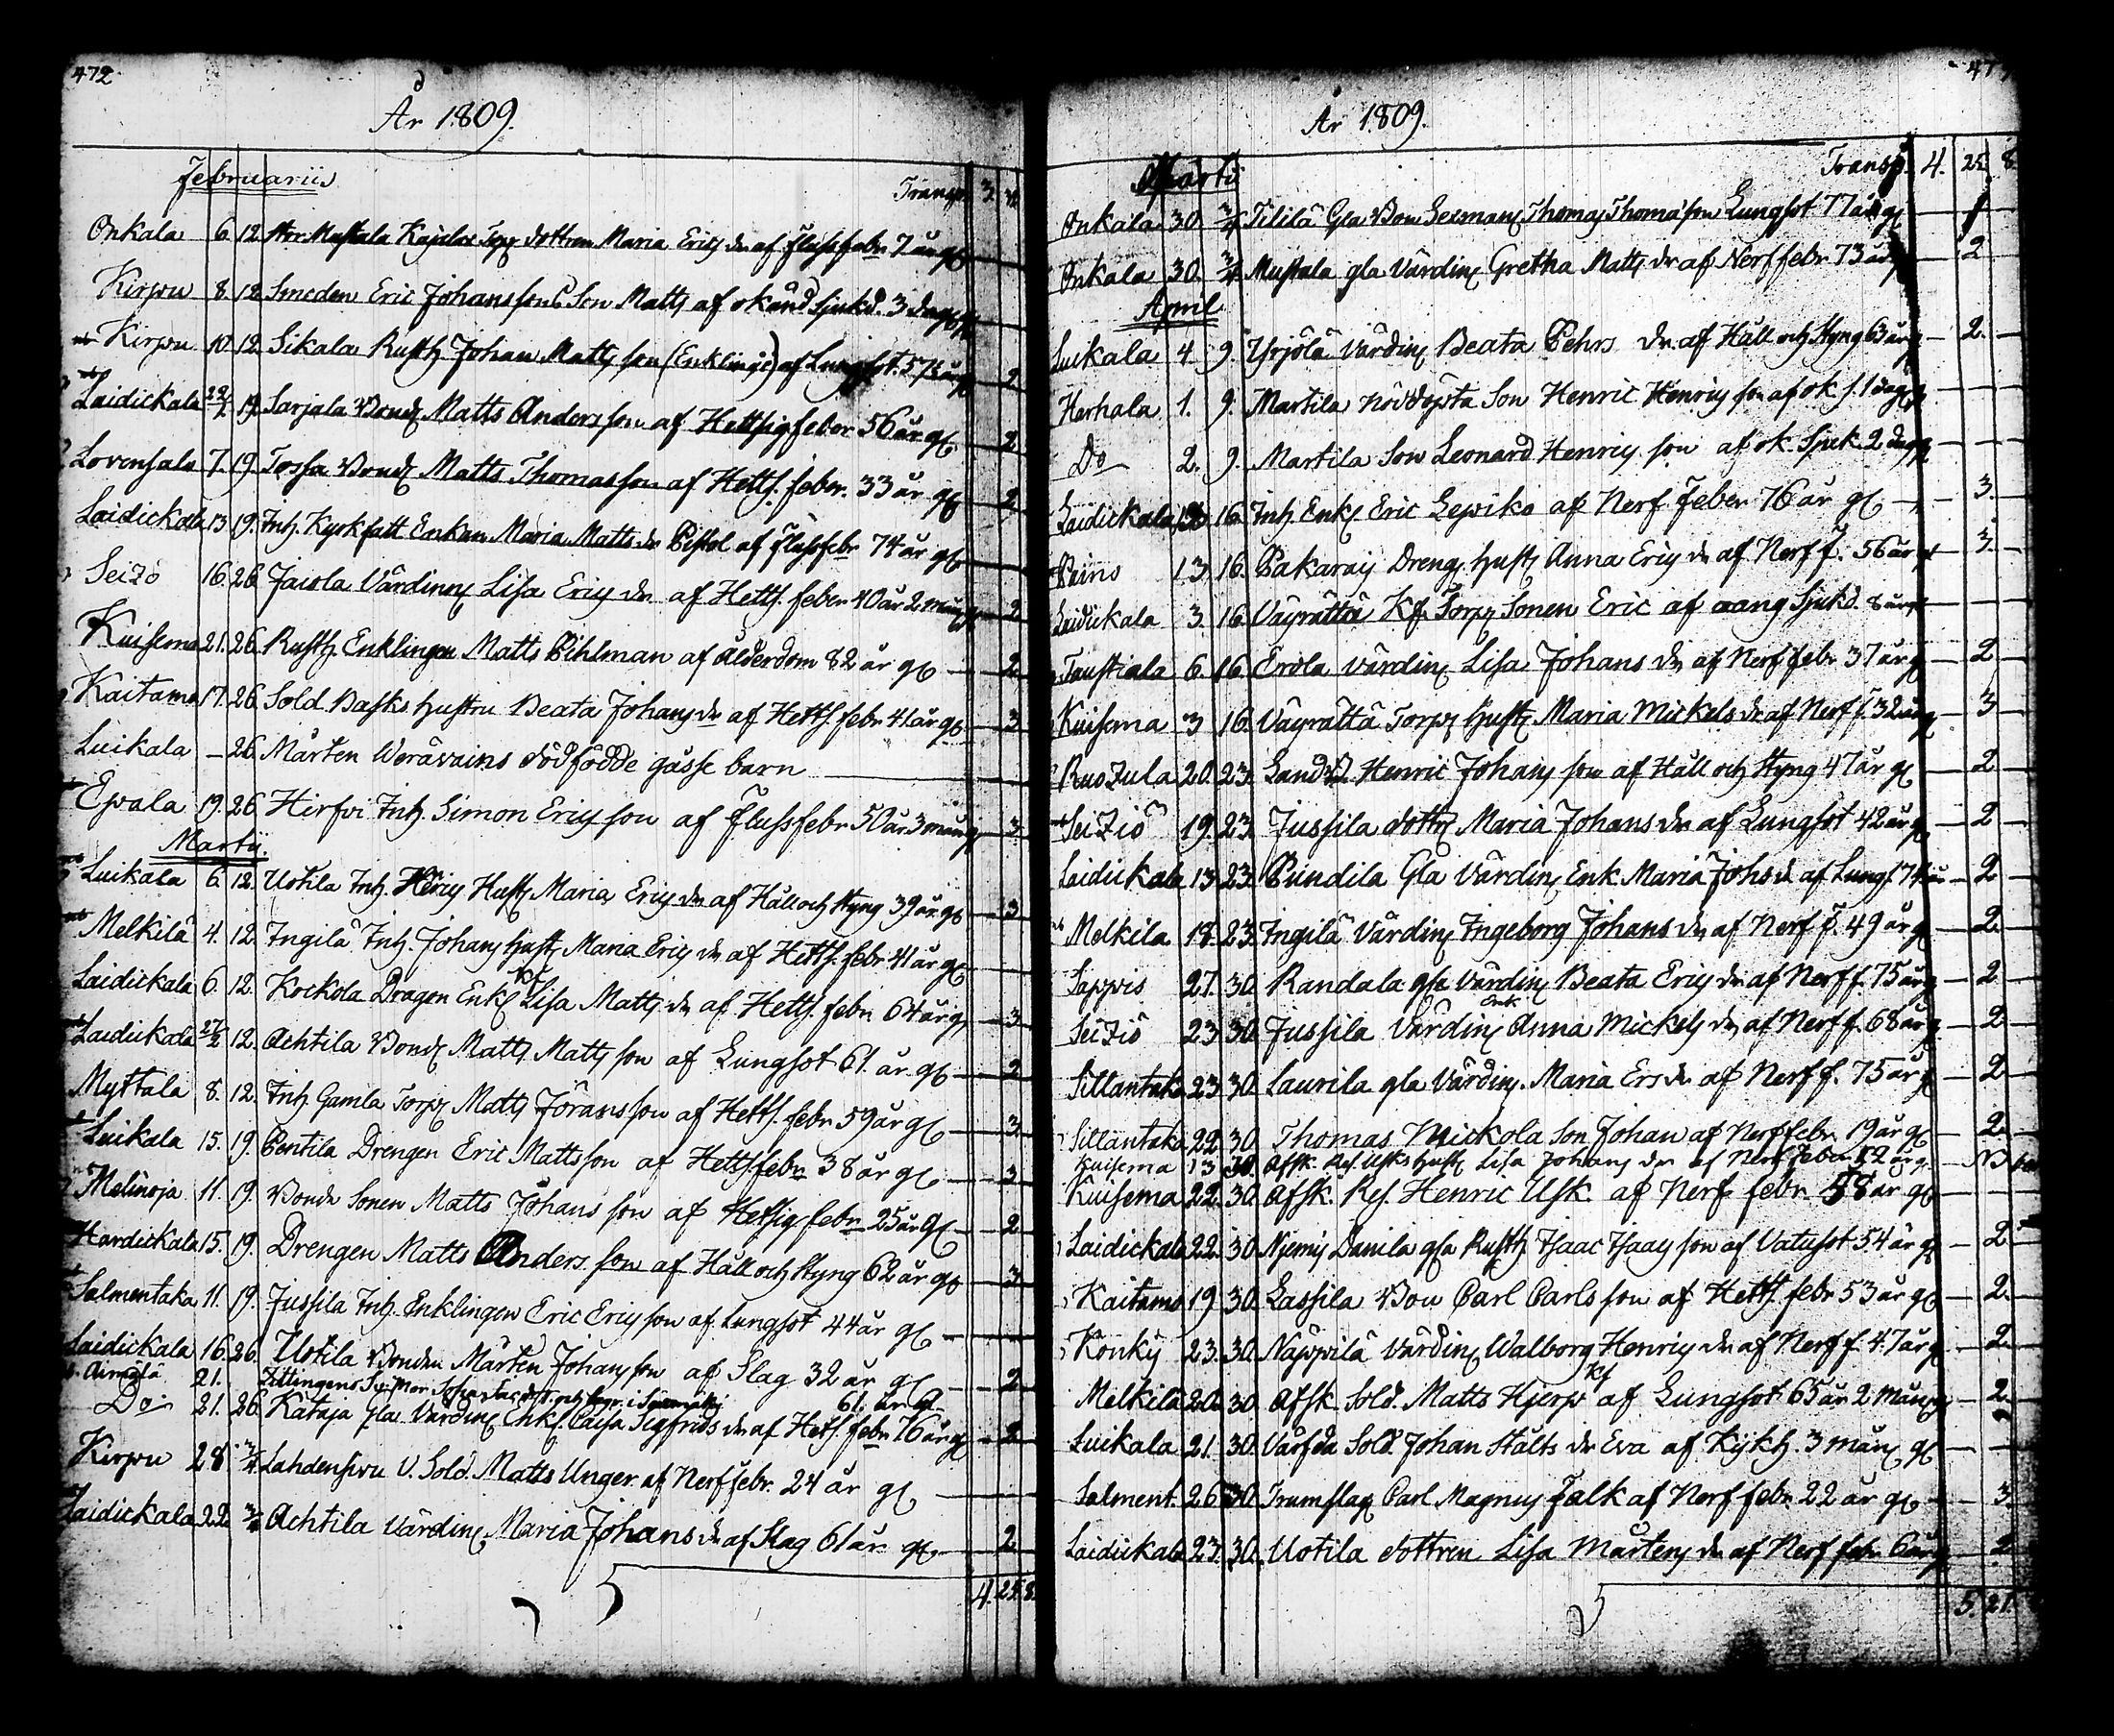 472
År 1809.
Februarius
Transp. 3.
Onkala 6. 12. Mustala Kajelax Torp dottren Maria Erics dr af flussfebr 7 år gl
Kirpu 8. 12. Smeden Eric Johanssons Son Matts af okänd sjukd. 3 dagar gl
Kirpu 10. 12. Sikala Rusth Johan Matts son (Enklinge) af Lungsot. 57 år gl 2
Laidickala 29/1 19. Sarjala Bond Matts Andersson af Hettsigfeber 56 år gl 2
Lovensala 7. 19. Tossa Bond Matts Thomasson af Hetts. feber. 33 år gl 2
Laidickala 13. 19. Inh. Kyrkfatt Enkan Maria Matts dr Pistol af flussfebr 74 år gl
Seizio 16. 26. Jaiola Värdinn Lisa Erics dr af Hetts. feber 40 år 2 mån gl 2
Kuisema 21. 26. Rusth Enklingen Matts Pihlman af ålderdom 82 år gl 2
Kaitamo 17. 26. Sold Basks hustru Beata Johans dr af Hetts febr 41 år gl 3
Luikala – 26. Mårten Weräväins dödfödde gåsse barn
Epala 19. 26. Hirfvi Inh. Simon Erics son af flussfebr 50 år 3 mån gl 3
Martii.
Luikala 6. 12. Uotila Inh. Herics Hust Maria Erics dr af Håll och Styng 39 år gl 3
Melkilä 4. 12. Ingilä Inh. Johans hust Maria Erics dr af Hetts. febr 41 år gl
Laidickala 6. 12. Kockola Dragon Enk Lisa Matts dr af Hetts. febr 64 år gl 3
Laidickala 27/2 12. Achtila Bond Matts Matts son af Lungsot 61 år gl 2
Myttälä 8. 12. Inh Gamla Torp Matts Jöransson af Hetts. febr 59 år gl 3
Luikala 15. 19. Pentila Drengen Eric Mattsson af Hetts. febr 38 år gl 3
Melinoja 11. 19. Bonde Sonen Matts Johans son af Hetsig febr 25 år gl 2
Hardickala 15. 19. Drengen Matts Anders son af Håll och Styng 62 år gl 3
Salmentaka 11. 19. Jussila Inh. Enklingen Eric Erics son af Lungsot 44 år gl
Laidickala 16. 26. Uotila Bonden Mårten Johansson af Slag 32 år gl 2
Airola 21. Zittingens Sv. Mor Sofia 61. år gl
Do 21. 26. Kataja gla Värdin Enk. Caisa Sigfrids dr af Hets. febr 76 år gl 2
Kirpu 28. 3/4 Lahdensivu V. Sold. Matts Unger af Nerffebr. 24 år gl
Laidickala 22. 3/4 Achtila Värdin Maria Johans dr af Slag 61 år gl 2
4. 25. 8.
47
År 1809.
Martii
Transp. 4. 25. 8
Onkala 30. 3/4 Tililä Gla Bon Thomas Thomasson Lungsot 77 år gl
Onkala 30. 3/4 Mustala gla Värdin Gretha Matts dr af Nerffebr 73 år 2
April
Luikala 4 9. Yrjölä Värdin Beata Pehrs dr af Håll och Styng 63 år gl 2.
Herhala 1. 9. Martila nöddöpta Son Henric Henrics son af ok s. 1 dag gl
Do 2. 9. Martila Son Leonard Henrics son af ok Sjuk 2 dag gl
Laidickala 16. Inh. Enk Eric Lepikö af Nerf Feber 76 år gl 3.
Pains 13. 16. Pakarais Dreng hust Anna Erics dr af Nerf f. 56 år gl 3.
Laidickala 3. 16. Väyrättä Kf Torp Sonen Eric af aang Sjukd. 8 år gl
Taustiala 6. 16. Erola värdin Lisa Johans dr af Nerffebr 37 år gl 2
Kuisema 3 16. Väyrättä Torp Hust Maria Mickels dr af Nerf f. 32 år gl 3
Ruozula 20. 23. Landb. Henric Johans son af Håll och Styng 47 år gl 2
Seiziö 19. 23. Jussila dottr Maria Johans dr af Lungsot 42 år gl 2
Laidickala 13. 23. Pundila Gla Värdin Enk Maria Johs d af Lungs 74 år 2
Melkila 18. 23. Ingilä Värdin Ingeborg Johans dr af Nerf f. 49 år gl 2
Sappis 27. 30. Randala gla Värdin Beata Erics dr af Nerf f. 75 år gl 2
Seiziö 23. 30. Jussila Värdin Enk Anna Mickels dr af Nerf f. 68 år gl 2
Sillantaka 23 30. Laurila gla Värdin. Maria Ers dr af Nerf f. 75 år gl 2
Sillantaka 22. 30. Thomas Mickola Son Johan af Nerffebr 19 år gl 2.
Kuisema 13 30. Afsk. Res. Usks hust Lisa Johans dr af Nerf feber 52 år gl
Kuisema 22. 30. Afsk. Res. Henric Usk. af Nerf febr 58 år gl
Laidickala 22. 30. Njemis Danila gla Rusth Isaac Isaacs son af Vatusot 54 år gl 2
Kaitamo 19 30. Lassila Bon Carl Carls son af Hetts. febr 53 år gl 2.
Konky 23. 30. Näppilä Värdin Walborg Henrics dr af Nerf f. 47 år gl 2.
Melkilä 20. 30. Afsk. Sold. Matts Hjerp Kf af Lungsot 65 år 2 Mån gl 2.
Luikala 21. 30. Värfda Sold. Johan Stålts dr Eva af Kykh. 3 mån gl
Salment. 26 30. Trumslag Carl Magnus Falk af Nerf febr 22 år gl 3.
Laidickala 23. 30. Uotila dottren Lisa Mårtens dr af Nerf febr 6 år gl 2
5. 21.